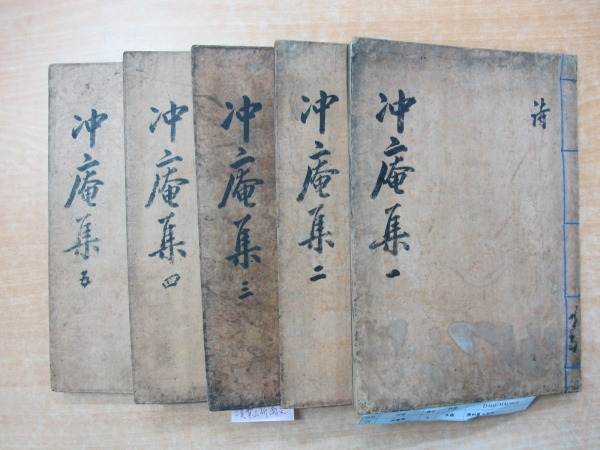 冲庵集 一
詩
冲庵集 二
冲庵集 三
冲庵集 四
冲庵集 五